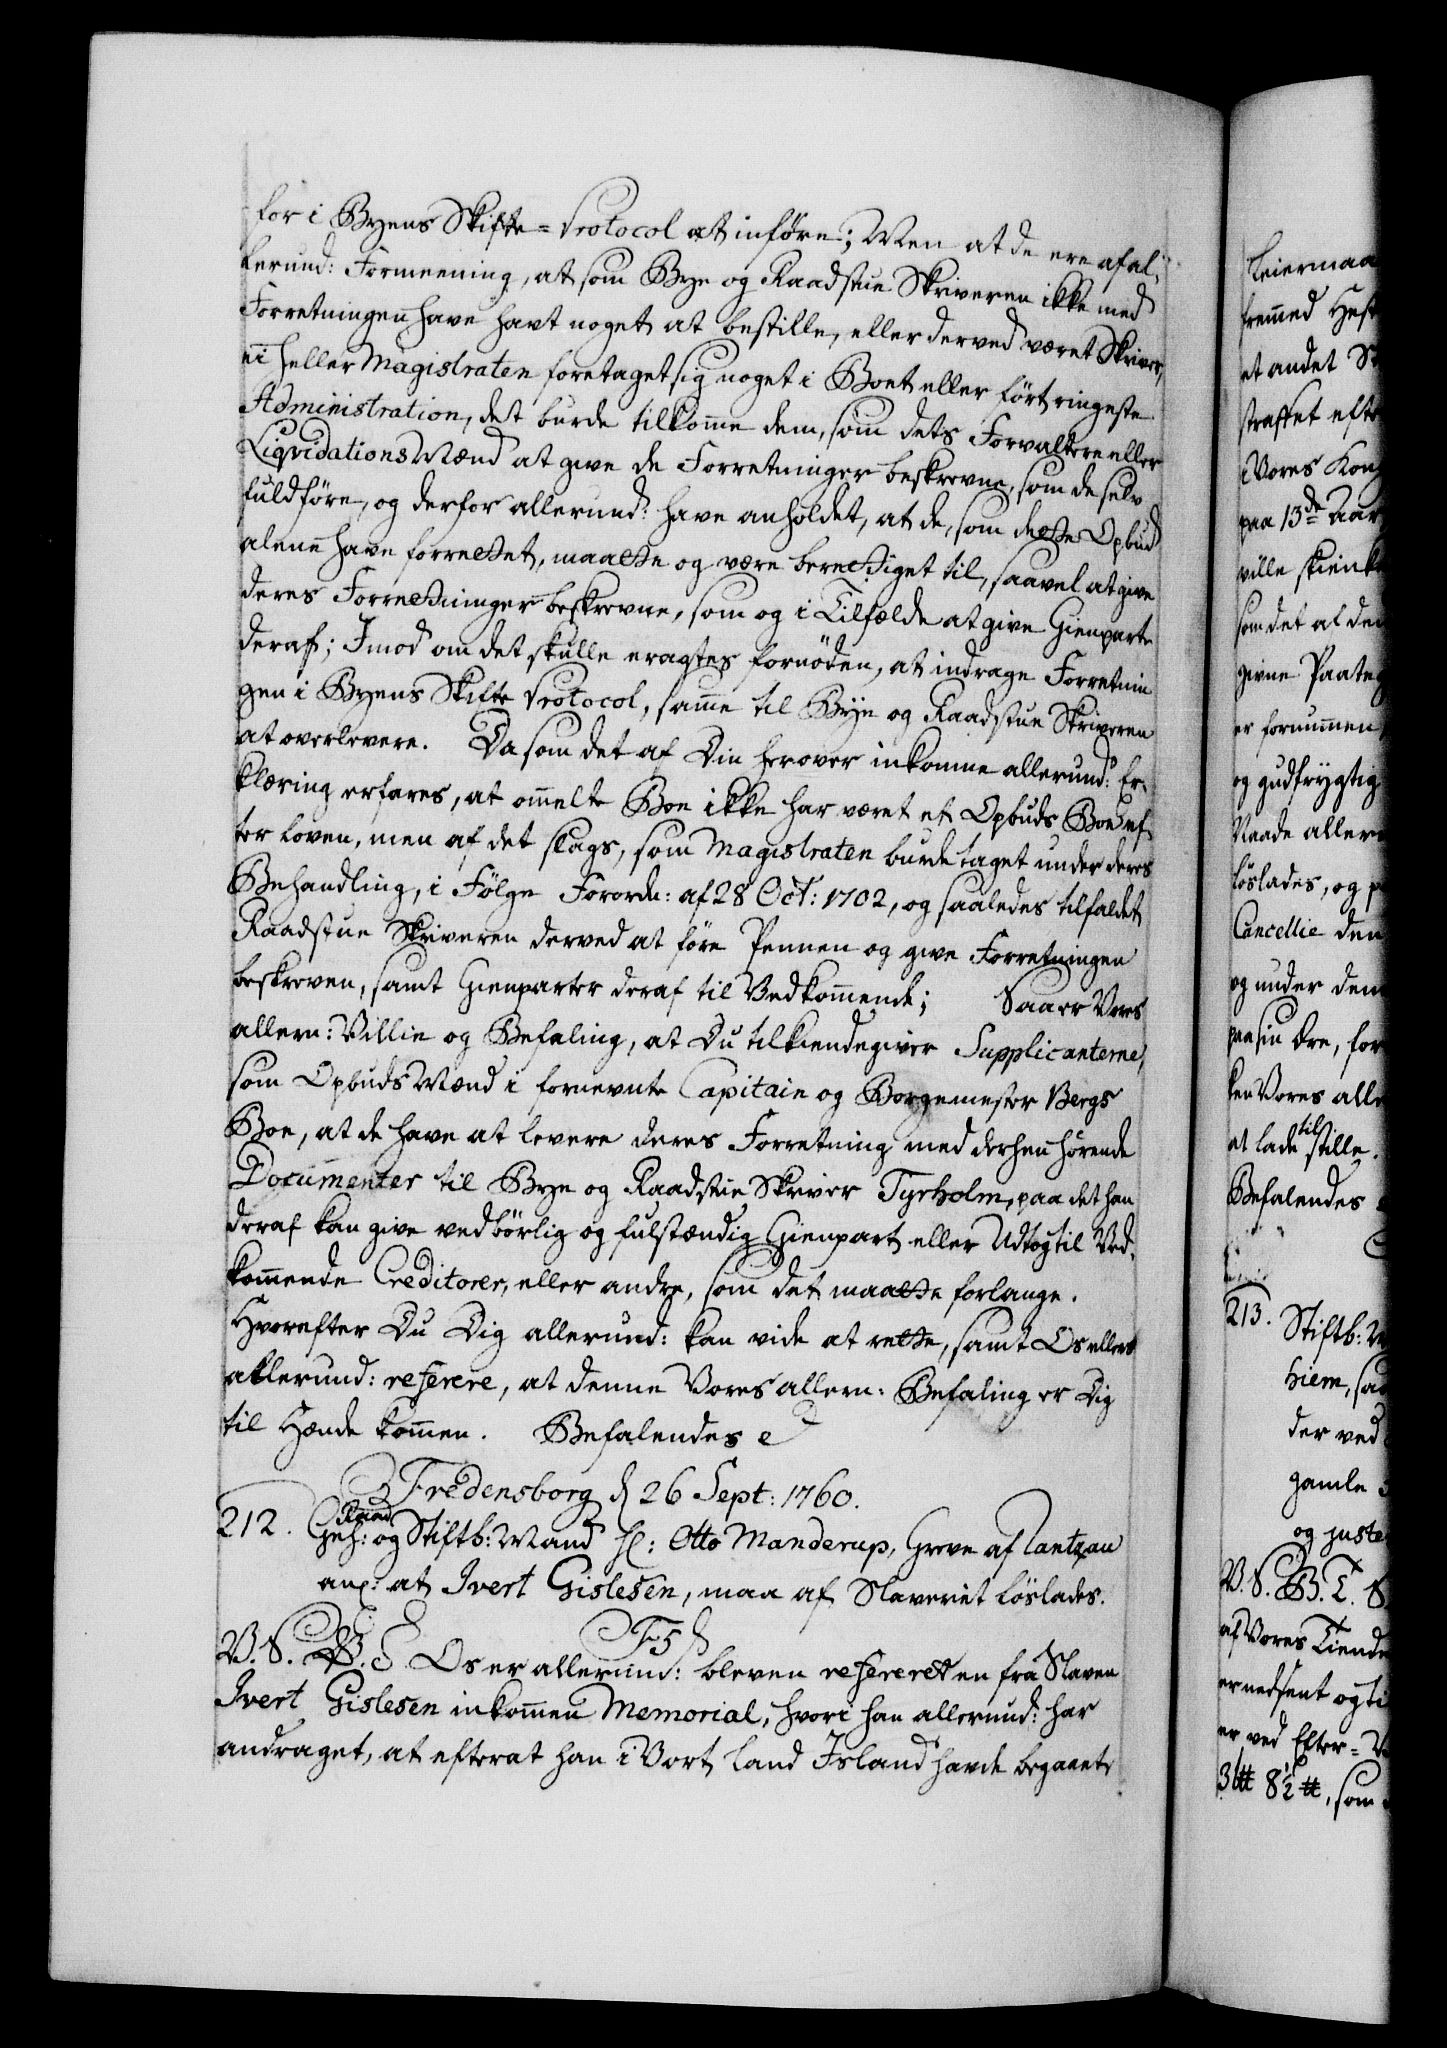 for i Byens Skifte=Protocol at inføre; Men at de ere af al¬
lerund: Formeening, at som Bye og Raadstue Skriveren ikke med
Forretningen have havt noget at bestille, eller derved været Skriver,
ei heller Magistraten foretaget sig noget i Boet eller ført ringeste
Administration, det burde tilkomme dem, som dets Forvaltere eller
Liqvidations Mænd at give de Forretninger beskrevne, som de selv
fuldføre, og derfor allerund: have anholdet, at de, som dette Opbud
alene have forrettet, maatte og være berettiget til, saavel at give
deres Forretninger beskrevne, som og i Tilfælde at give Gienparte
deraf; Imod om det skulle eragtes fornøden, at indrage Forretnin
gen i Byens Skifte Protocol, samme til Bye og Raadstue Skriveren
at overlevere. Da som det af Din herover inkomne allerund: Er¬
klæring erfares, at ommelte Boe ikke har været et Opbuds Boe ef¬
ter Loven, men af det slags, som Magistraten burde taget under deres
Behandling, i Følge Forordn: af 28 Oct: 1702, og saaledes tilfaldet
Raadstue Skriveren derved at føre Pennen og give Forretningen
beskreven, samt Gienparter deraf til Vedkommende; Saa er Vores
allern: Villie og Befaling, at Du tilkiendegiver Supplicanterne,
som Opbuds Mænd i fornevnte Capitain og Borgemester Bergs
Boe, at de have at levere deres Forretning med derhen hørende
Documenter til Bye og Raadstue Skriver Tyrholm, paa det han
deraf kan give vedbørlig og fulstændig Gienpart eller Udtog til Ved¬
kommende Creditorer, eller andre, som det maatte forlange.
Hvorefter Du Dig allerund: kan vide at rette, samt Os ellers
allerund: referere, at denne Vores allern: Befaling er Dig
til Hænde kommen. Befalendes
Fredensborg d 26 Sept: 1760.
212. Geh: Raad og Stiftb: Mand H: Otto Manderup, Greve af Rantzau
anl: at Ivert Gislesen, maa af Slaveriet løslades.
F5
V. S. G. T. Os er allerund: bleven refereret en fra Slaven
Ivert Gislesen inkommen Memorial, hvori han allerund: har
andraget, at efterat han i Vort Land Island havde begaaet
Leiermaa
fremmed Hest
et andet St
straffet efte
i Vores Kong
paa 13de Aar
ville skienke
som det af de
givne Paateg
er fornummen
og gudfrygtig
Naade allern
løslades, og p
Cancellie den
og under den
paa sin Ære, for
ken Vores alle
at lade tilstille.
Befalendes
213. Stiftb: M
hiem, saa
der ved
gamle
og juste
V. S. G. T. S
af Vores Tiende
er nedsent og ti
er ved Efter=
3 ℔ 8½ ℔, som